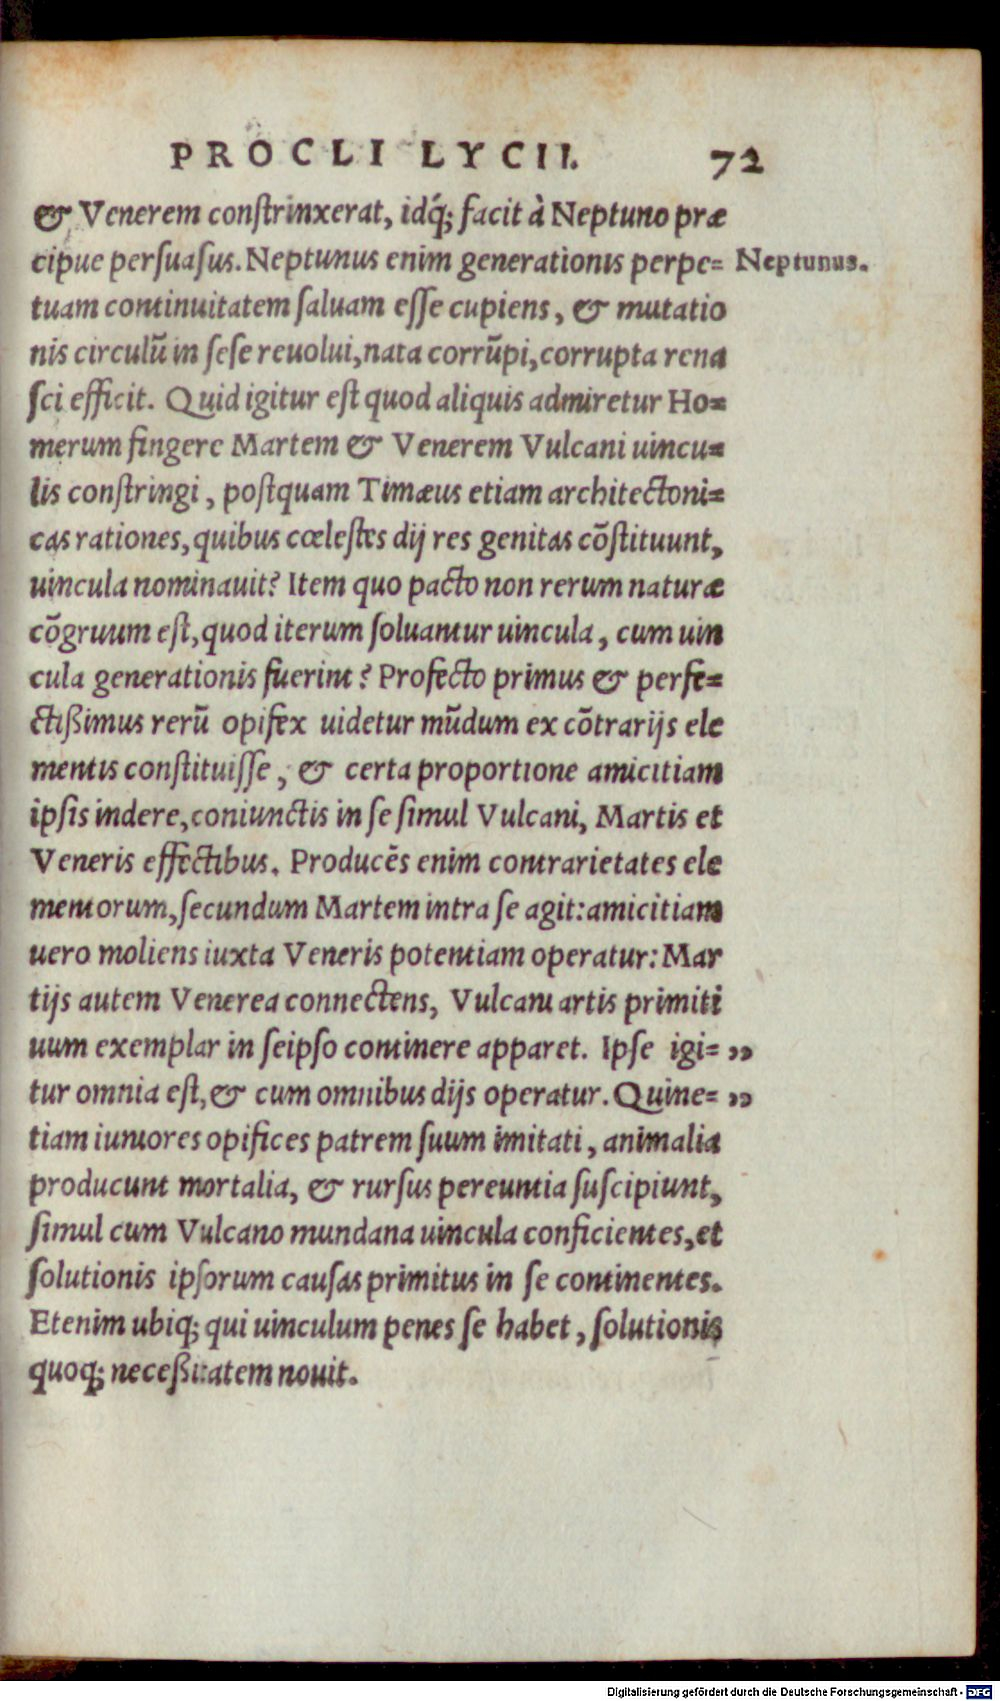 PROCLI LYCII. 72
& Venerem conſtrinxerat, idq́; facit à Neptuno præ
cipue perſuaſus. Neptunus enim generationis perpe= Neptunus.
tuam continuitatem ſaluam eſſe cupiens, & mutatio
nis circulũ in ſeſe reuolui, nata corrũpi, corrupta rena
ſci efficit. Quid igitur eſt quod aliquis admiretur Ho=
merum fingere Martem & Venerem Vulcani uincu=
lis conſtringi, poſtquam Timæus etiam architectoni=
cas rationes, quibus cœleſtes dij res genitas cõſtituunt,
uincula nominauit? Item quo pacto non rerum naturæ
cõgruum eſt, quod iterum ſoluantur uincula, cum uin
cula generationis fuerint? Profecto primus & perfe=
ctißimus rerũ opifex uidetur mũdum ex cõtrarijs ele
mentis conſtituiſſe, & certa proportione amicitiam
ipſis indere, coniunctis in ſe ſimul Vulcani, Martis et
Veneris effectibus. Producẽs enim contrarietates ele
mentorum, ſecundum Martem intra ſe agit: amicitiam
uero moliens iuxta Veneris potentiam operatur: Mar
tijs autem Venerea connectens, Vulcani artis primiti
uum exemplar in ſeipſo continere apparet. Ipſe igi= „
tur omnia eſt, & cum omnibus dijs operatur. Quine= „
tiam iuniores opifices patrem ſuum imitati, animalia
producunt mortalia, & rurſus pereuntia ſuſcipiunt,
ſimul cum Vulcano mundana uincula conficientes, et
ſolutionis ipſorum cauſas primitus in ſe continentes.
Etenim ubiq; qui uinculum penes ſe habet, ſolutionis
quoq; neceßitatem nouit.
Digitalisierung gefördert durch die Deutsche Forschungsgemeinschaft - DFG